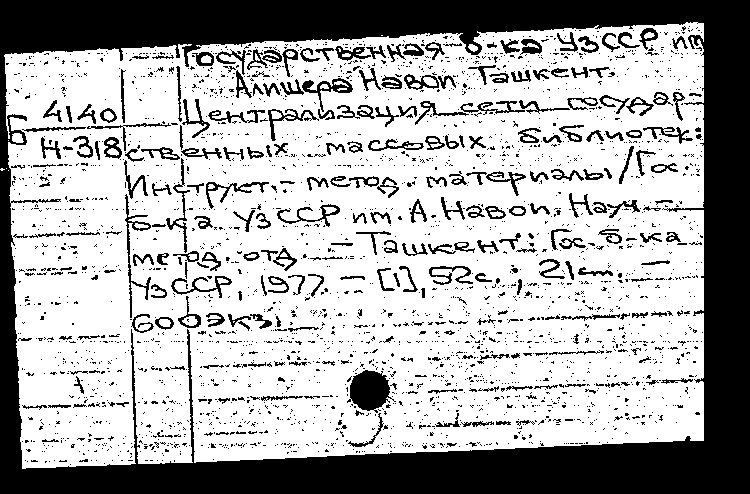 Государственная б-ка УзССР им
Алишера Навои. Ташкент.
Б 4140
Н-318
Централизация сети государ-
ственных массовых библиотек:
Инструкт.- метод. материалы/Гос.
б-ка УзССР им. А. Навои. Науч.-
метод. отд. - Ташкент: Гос. б-ка
УзССР, 1977. - [1], 52с.; 21см. -
600экз.